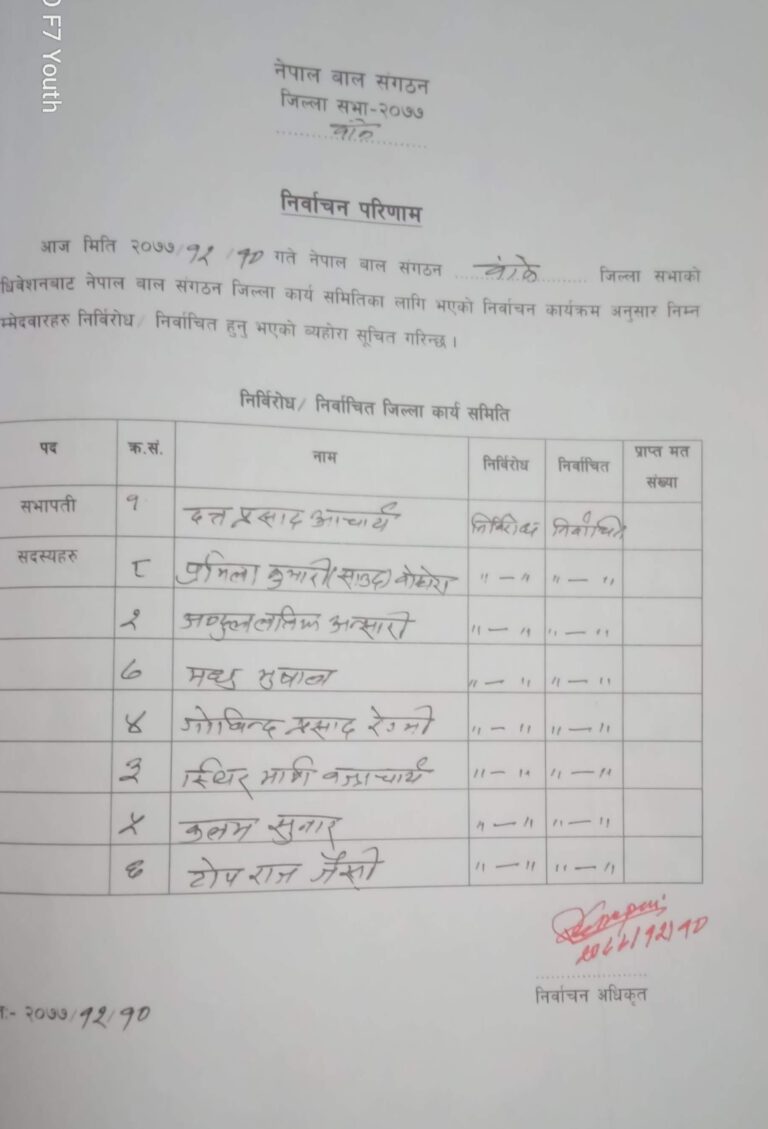 F7 Youth
नेपाल बाल संगठन
जिल्ला सभा-२०७७
बाँके
निर्वाचन परिणाम
आज मिति २०७७/१२/१० गते नेपाल बाल संगठन बाँके जिल्ला सभाको
धिवेशनबाट नेपाल बाल संगठन जिल्ला कार्य समितिका लागि भएको निर्वाचन कार्यक्रम अनुसार निम्न
म्मेदवारहरु निर्विरोध/ निर्वाचित हुनु भएको व्यहोरा सूचित गरिन्छ ।
निर्विरोध/ निर्वाचित जिल्ला कार्य समिति
पद क्र.सं. नाम निर्विरोध निर्वाचित प्राप्त मत
संख्या
सभापती १ दत्त प्रसाद आचार्य निर्विरोध निर्वाचित
सदस्यहरु ८ प्रमिला कुमारी (साउद) " — " " — "
२ अब्दुल लतिफ अन्सारी " — " " — "
७ मधु भुषाल " — " " — "
४ गोबिन्द प्रसाद रेग्मी " — " " — "
३ स्थिर मणि बज्राचार्य " — " " — "
५ कलम सुनार " — " " — "
६ टोप राज जैसी " — " " — "
२०७७/१२/१०
निर्वाचन अधिकृत
:- २०७७/१२/१०